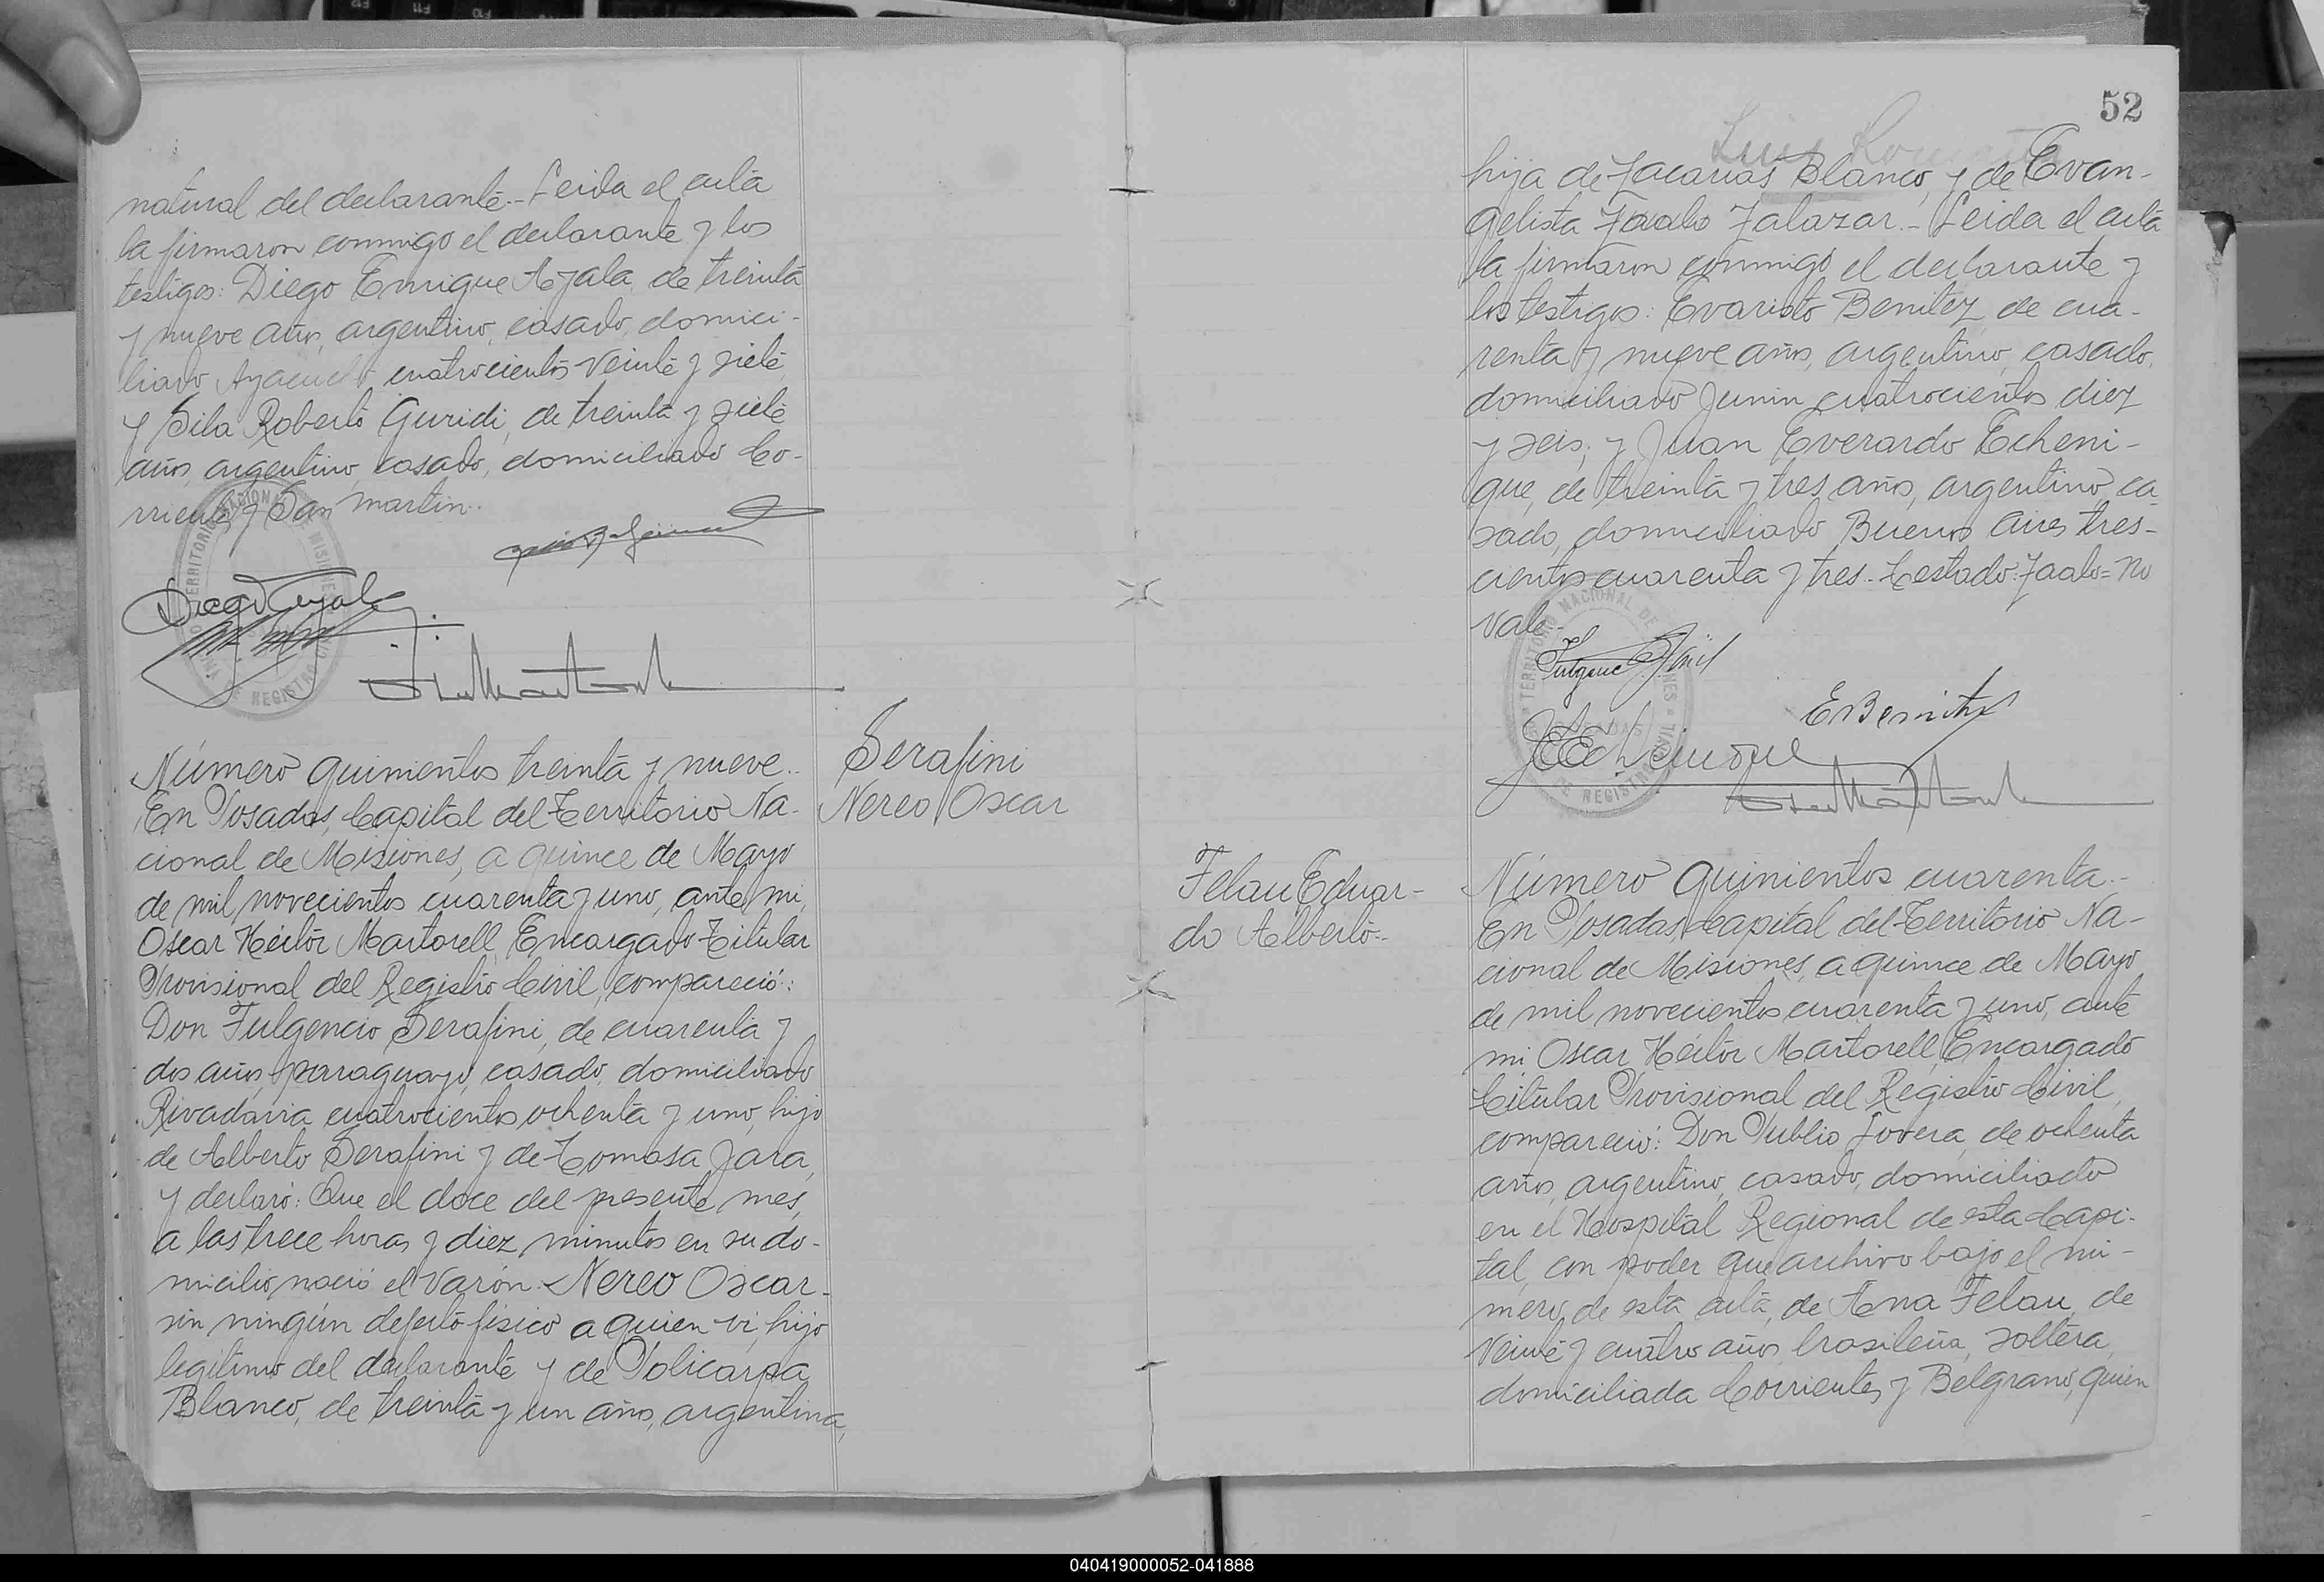 natural del declarante.- Leida el acta
la firmaron conmigo el declarante y los
testigos: Diego Enrique Ayala, de treinta
y nueve años, argentino, casado, domici-
liado Ayacucho cuatrocientos veinte y siete,
y Sila Roberto Guridi, de treinta y siete
años, argentino, casado, domiciliado Co-
rrientes y San Martin.-
Número quinientos treinta y nueve.-
En Posadas, Capital del Territorio Na-
cional de Misiones, a quince de Mayo
de mil novecientos cuarenta y uno, ante mi,
Oscar Héctor Martorell, Encargado Titular
Provisional del Registro Civil, compareció:
Don Fulgencio Serafini, de cuarenta y
dos años, paraguayo, casado, domiciliado
Rivadavia cuatrocientos ochenta y uno, hijo
de Alberto Serafini y de Tomasa Jara,
y declaró: Que el doce del presente mes,
a las trece horas y diez minutos en su do-
micilio nació el varón: Nereo Oscar-
sin ningún defecto fisico a quien vi, hijo
legitimo del declarante y de Policarpa
Blanco, de treinta y un años, argentina,
Serafini
Nereo Oscar
52
Luis
hija de Zacarias Blanco, y de Evan-
gelista Zaalo Zalazar.- Leida el acta
la firmaron conmigo el declarante y
los testigos: Evaristo Benitez, de cua-
renta y nueve años, argentino, casado,
domiciliado Junin cuatrocientos diez
y seis; y Juan Everardo Echeni-
que, de treinta y tres años, argentino, ca
sado, domiciliado Buenos Aires tres-
cientos cuarenta y tres.- Testado: Zaalo= No
Vale-
EBenitez
Felau Eduar-
do Alberto.-
Número quinientos cuarenta.-
En Posadas, Capital del Territorio Na-
cional de Misiones, a quince de Mayo
de mil novecientos cuarenta y uno, ante
mi, Oscar Héctor Martorell, Encargado
Titular Provisional del Registro Civil,
compareció: Don Publio Lovera, de ochenta
años, argentino, casado, domiciliado
en el Hospital Regional de esta Capi-
tal, con poder que archivo bajo el nú-
mero de esta acta, de Ana Felau, de
veinte y cuatro años, brasileña, soltera,
domiciliada Corrientes y Belgrano, quien
040419000052-041888